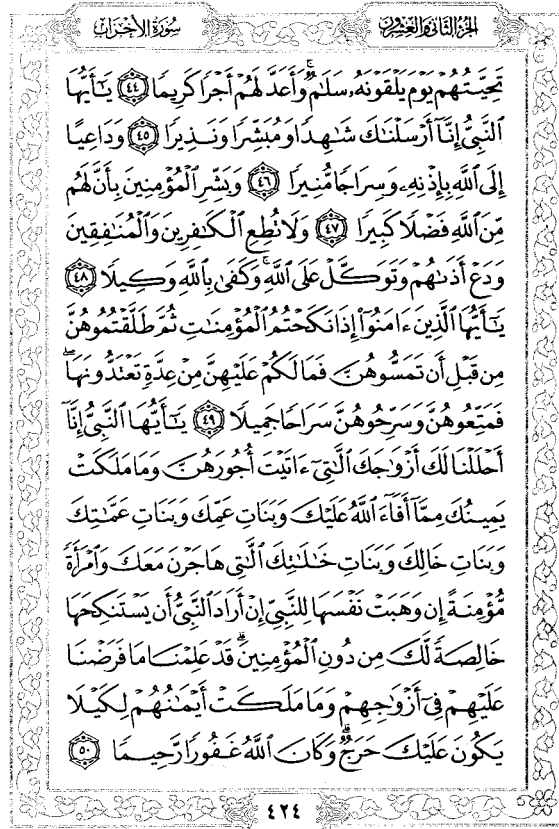 سُورَةُ الأَحْزَابِ
الجُزءُ الثَّانِي وَالعِشْرُونَ
تَحِيَّتُهُمْ يَوْمَ يَلْقَوْنَهُۥ سَلَٰمٌ ۚ وَأَعَدَّ لَهُمْ أَجْرًا كَرِيمًا ٤٤ يَٰٓأَيُّهَا
ٱلنَّبِىُّ إِنَّآ أَرْسَلْنَٰكَ شَٰهِدًا وَمُبَشِّرًا وَنَذِيرًا ٤٥ وَدَاعِيًا
إِلَى ٱللَّهِ بِإِذْنِهِۦ وَسِرَاجًا مُّنِيرًا ٤٦ وَبَشِّرِ ٱلْمُؤْمِنِينَ بِأَنَّ لَهُم
مِّنَ ٱللَّهِ فَضْلًا كَبِيرًا ٤٧ وَلَا تُطِعِ ٱلْكَٰفِرِينَ وَٱلْمُنَٰفِقِينَ
وَدَعْ أَذَىٰهُمْ وَتَوَكَّلْ عَلَى ٱللَّهِ ۚ وَكَفَىٰ بِٱللَّهِ وَكِيلًا ٤٨
يَٰٓأَيُّهَا ٱلَّذِينَ ءَامَنُوٓا۟ إِذَا نَكَحْتُمُ ٱلْمُؤْمِنَٰتِ ثُمَّ طَلَّقْتُمُوهُنَّ
مِن قَبْلِ أَن تَمَسُّوهُنَّ فَمَا لَكُمْ عَلَيْهِنَّ مِنْ عِدَّةٍ تَعْتَدُّونَهَا ۖ
فَمَتِّعُوهُنَّ وَسَرِّحُوهُنَّ سَرَاحًا جَمِيلًا ٤٩ يَٰٓأَيُّهَا ٱلنَّبِىُّ إِنَّآ
أَحْلَلْنَا لَكَ أَزْوَٰجَكَ ٱلَّٰتِىٓ ءَاتَيْتَ أُجُورَهُنَّ وَمَا مَلَكَتْ
يَمِينُكَ مِمَّآ أَفَآءَ ٱللَّهُ عَلَيْكَ وَبَنَاتِ عَمِّكَ وَبَنَاتِ عَمَّٰتِكَ
وَبَنَاتِ خَالِكَ وَبَنَاتِ خَٰلَٰتِكَ ٱلَّٰتِى هَاجَرْنَ مَعَكَ وَٱمْرَأَةً
مُّؤْمِنَةً إِن وَهَبَتْ نَفْسَهَا لِلنَّبِىِّ إِنْ أَرَادَ ٱلنَّبِىُّ أَن يَسْتَنكِحَهَا
خَالِصَةً لَّكَ مِن دُونِ ٱلْمُؤْمِنِينَ ۗ قَدْ عَلِمْنَا مَا فَرَضْنَا
عَلَيْهِمْ فِىٓ أَزْوَٰجِهِمْ وَمَا مَلَكَتْ أَيْمَٰنُهُمْ لِكَيْلَا
يَكُونَ عَلَيْكَ حَرَجٌ ۗ وَكَانَ ٱللَّهُ غَفُورًا رَّحِيمًا ٥٠
٤٢٤